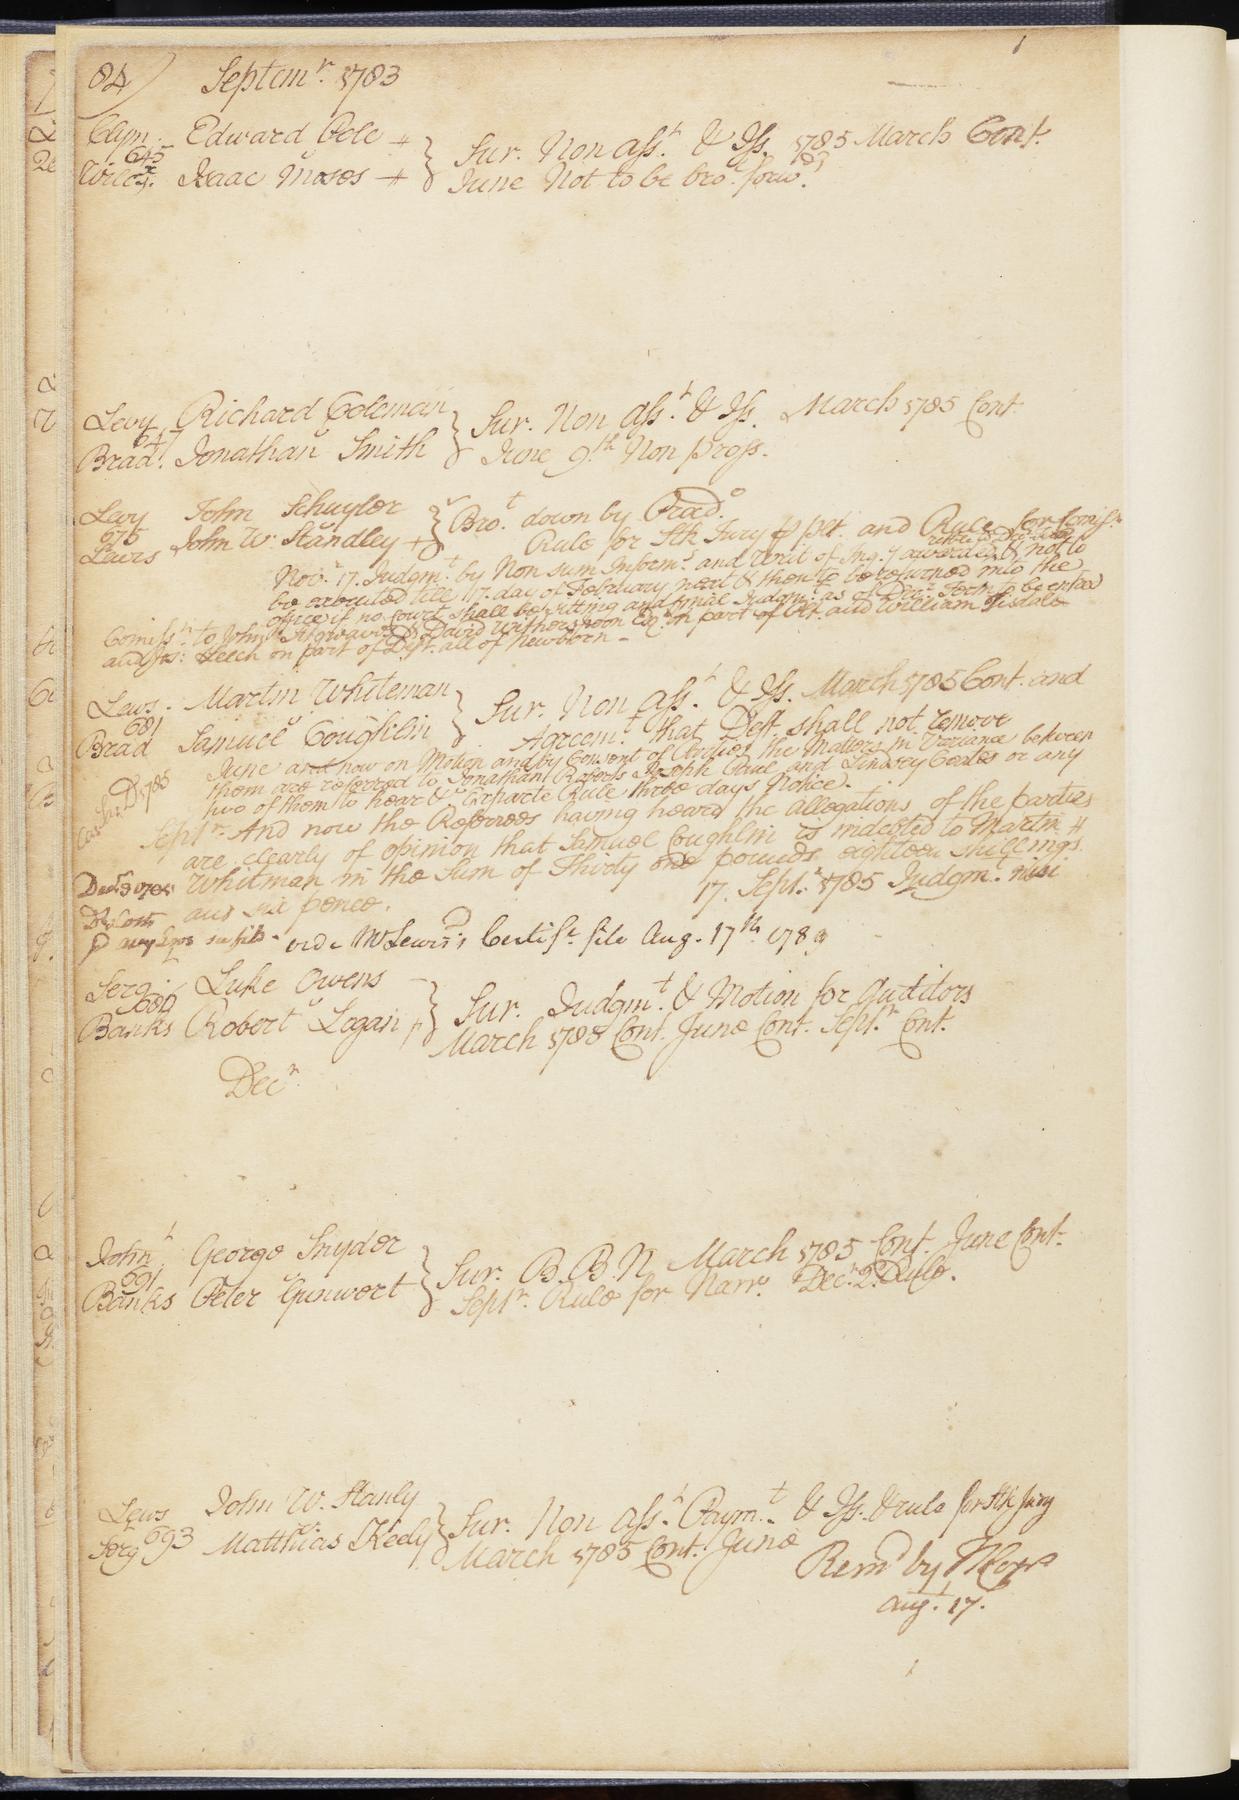 84) Septem.r 1783
Clym. Edward Pole
645
Isaac Moses
Sur. Non ass.t & Iss. 1785 March Cont.
June Not to be bro.t forw.d
Levy Richard Coleman
647
Brad. Jonathan Smith
Sur. Non ass.t & Iss. March 1785 Cont.
June 9.th Non pross.
Levy John Schuyler
675
Lewis John W. Standley +
Bro.t down by Prad.o
Rule for Stk Jury p Plt. and Rule for Comiss.n
Nov.r 17. Judgm.t by Non sum Inform.s and Writ of Inq.y awarded & not to
be executed till 17. day of February next & then to be returned into the
office if no Court shall be sitting and final Judgm.t as of Dec.r Term to be enter'd
Comiss.n to John & David Witherspoon Esq.rs on part of Plt. and William Tisdale
and Jos: Leech on part of Deft. all of Newbern
Lews. Martin Whiteman
681
Brad Samuel Coughlin
Sur. Non ass.t & Iss. March 1785 Cont. and
Agreem.t that Deft. shall not remove
June and now on Motion and by Consent of Parties the Matters in Variance between
them are referred to Jonathan Roberts Joseph Prul and Lindsey Coates or any
two of them to hear &c Exparte Rule three days Notice.
Sept.r And now the Referrees having heard the allegations of the parties
are clearly of opinion that Samuel Coughlin is indebted to Martin
Whitman in the Sum of Thirty one pounds eighteen shillings
and six pence.
17. Sept.r 1785 Judgm.t nisi
vide M.r Lewis's Certif.t file Aug. 17th 1789
Serg. Luke Owens
686
Banks Robert Logan
Sur. Judgm.t & Motion for Auditors
March 1785 Cont. June Cont. Sept.r Cont.
Dec.r
John.t George Snyder
691
Banks Peter Gunwert
Sur. B. B. N. March 1785 Cont. June Cont.
Sept.r Rule for Narr. Dec.r 2.d Rule.
Lews John W. Stanly
693
Serg Matthias Keely
Sur. Non ass.t Paym.t & Iss. & rule for Stk Jury
March 1785 Cont. June
Rem.d by
Aug.t 17.